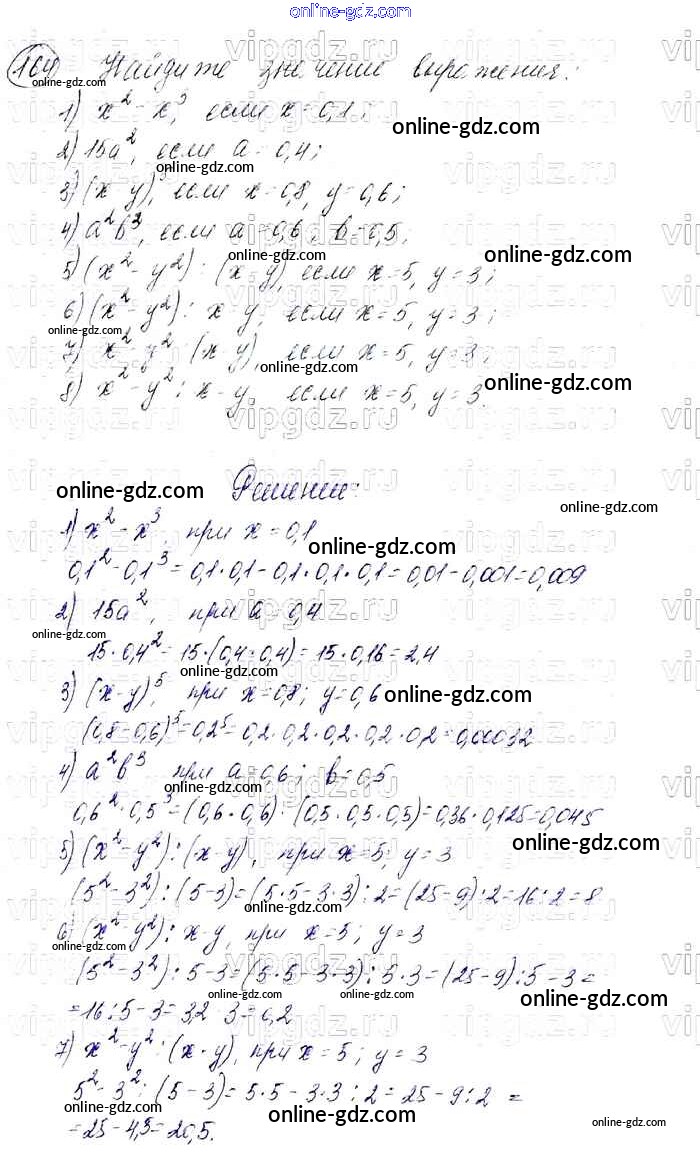 online-gdz.com
164 Найдите значение выражения:
1) x² - x³, если x = 0,1;
2) 15a², если a = 0,4;
3) (x - y)⁵, если x = 0,8, y = 0,6;
4) a²b³, если a = 0,6, b = 0,5;
5) (x² - y²) : (x - y), если x = 5, y = 3;
6) (x² - y²) : x - y, если x = 5, y = 3;
7) x² - y² : (x - y), если x = 5, y = 3;
8) x² - y² : x - y, если x = 5, y = 3.
Решение:
1) x² - x³, при x = 0,1
0,1² - 0,1³ = 0,1 · 0,1 - 0,1 · 0,1 · 0,1 = 0,01 - 0,001 = 0,009
2) 15a², при a = 0,4
15 · 0,4² = 15 · (0,4 · 0,4) = 15 · 0,16 = 2,4
3) (x - y)⁵, при x = 0,8; y = 0,6
(0,8 - 0,6)⁵ = 0,2⁵ = 0,2 · 0,2 · 0,2 · 0,2 · 0,2 = 0,00032
4) a²b³ при a = 0,6; b = 0,5
0,6² · 0,5³ = (0,6 · 0,6) · (0,5 · 0,5 · 0,5) = 0,36 · 0,125 = 0,045
5) (x² - y²) : (x - y), при x = 5; y = 3
(5² - 3²) : (5 - 3) = (5 · 5 - 3 · 3) : 2 = (25 - 9) : 2 = 16 : 2 = 8
6) (x² - y²) : x - y, при x = 5; y = 3
(5² - 3²) : 5 - 3 = (5 · 5 - 3 · 3) : 5 - 3 = (25 - 9) : 5 - 3 =
= 16 : 5 - 3 = 3,2 - 3 = 0,2
7) x² - y² : (x - y), при x = 5; y = 3
5² - 3² : (5 - 3) = 5 · 5 - 3 · 3 : 2 = 25 - 9 : 2 =
= 25 - 4,5 = 20,5.
online-gdz.com
vipgdz.ru